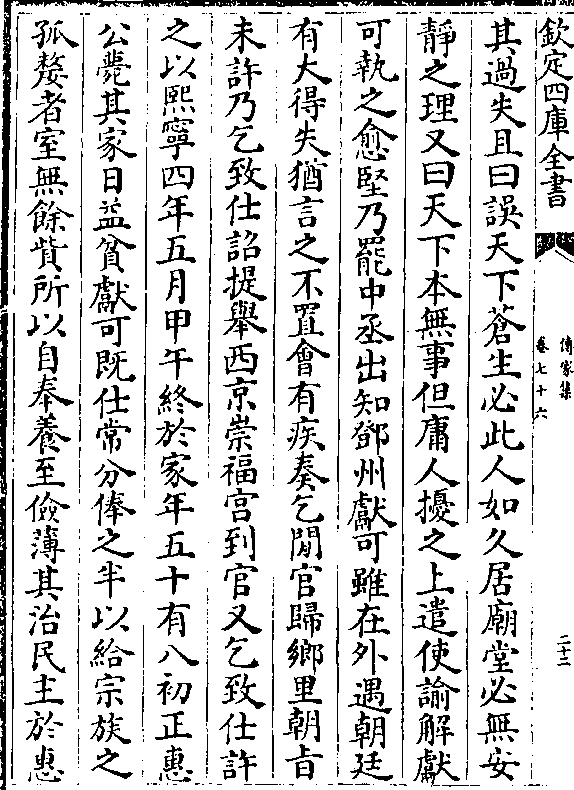 欽定四庫全書
傳家集
卷七十六
二十二
其過失且曰誤天下蒼生必此人如久居廟堂必無安
靜之理又曰天下本無事但庸人擾之上遣使諭解獻
可執之愈堅乃罷中丞出知鄧州獻可雖在外遇朝廷
有大得失猶言之不置會有疾奏乞閒官歸鄉里朝旨
未許乃乞致仕詔提舉西京崇福宫到官又乞致仕許
之以熙寧四年五月甲午終於家年五十有八初正惠
公薨其家日益貧獻可既仕常分俸之半以給宗族之
孤嫠者室無餘貲所以自奉養至儉薄其治民主於惠